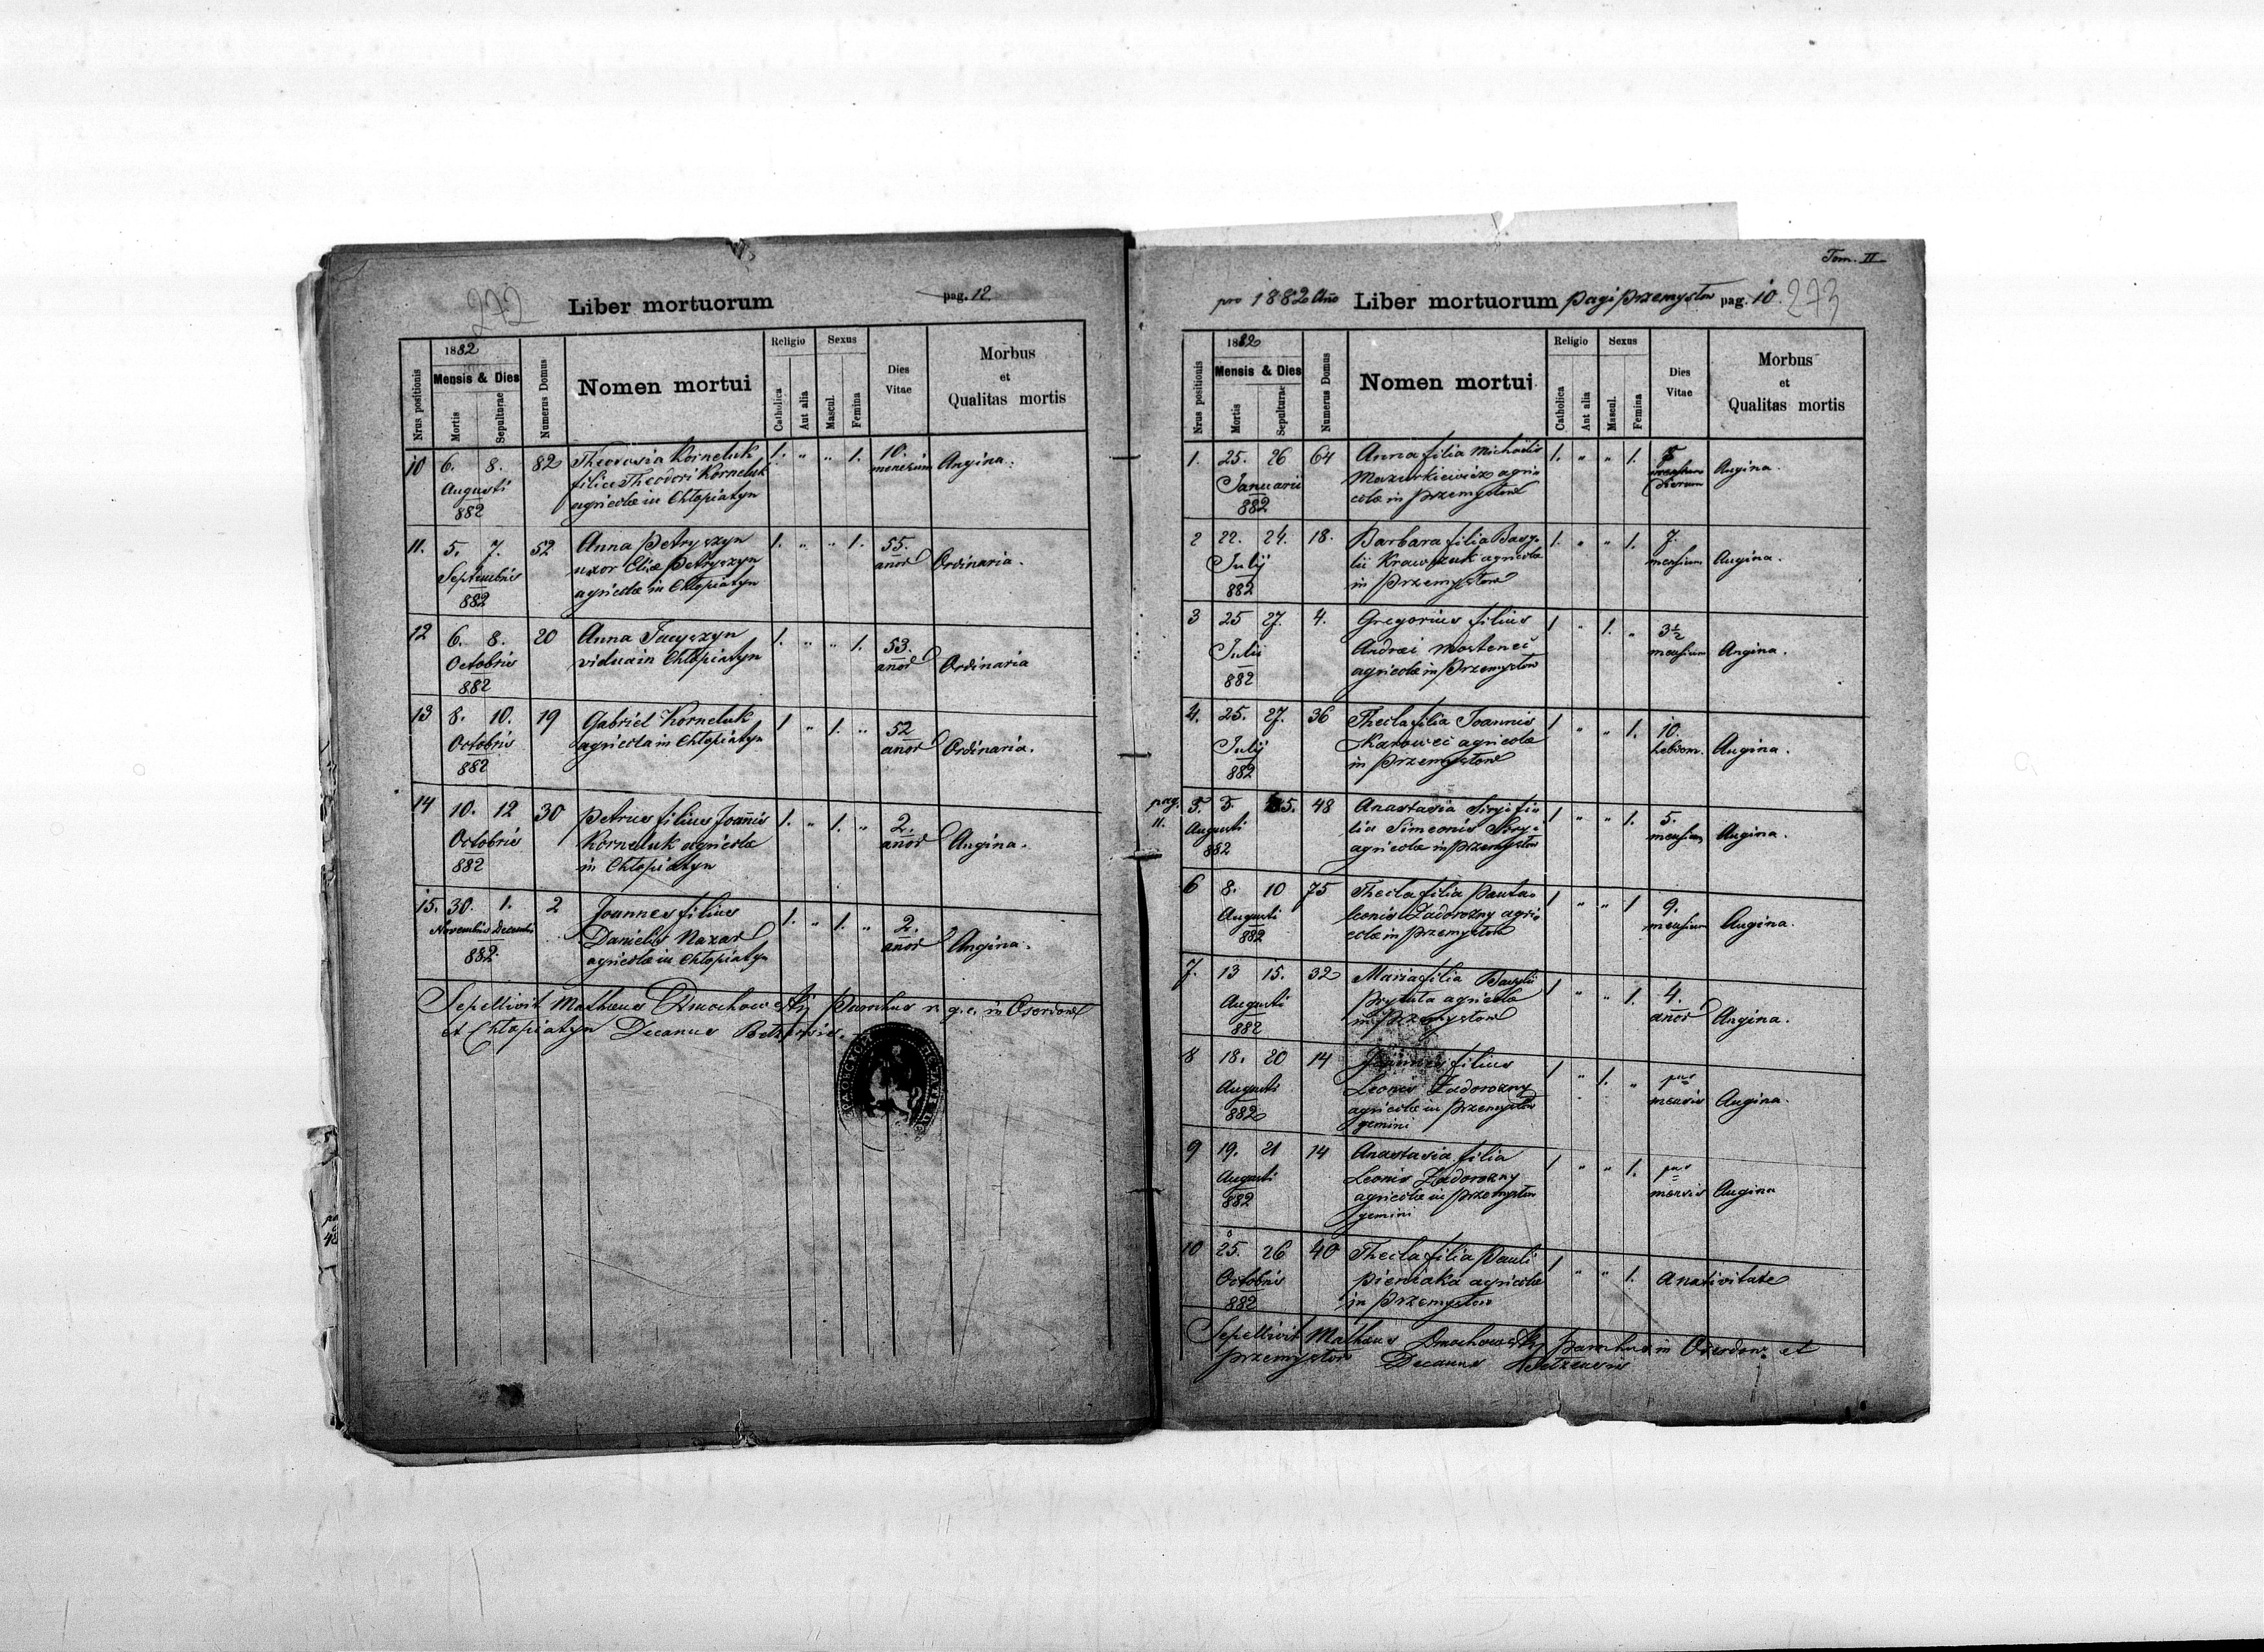 272
Liber mortuorum
pag. 12
Nrus positionis
1882
Mensis & Dies
Mortis
Sepulturae
Numerus Domus
Nomen mortui
Religio
Catholica
Aut alia
Sexus
Mascul.
Femina
Dies
Vitae
Morbus
et
Qualitas mortis
10 6. 8. 82 Theodosia Korneluk 1. " " 1. 10. Angina.
Augusti filia Theodori Korneluk mensium
882 agricolae in Chłopiatyn
11. 5. 7. 52 Anna Petryszyn 1. " " 1. 55. Ordinaria.
Septembris uxor Eliae Petryszyn anor
882 agricolae in Chłopiatyn
12 6. 8. 20 Anna Jacyszyn 1. " " 1. 53. Ordinaria
Octobris vidua in Chłopiatyn anor
882
13 8. 10. 19 Gabriel Korneluk 1 " 1. " 52 Ordinaria.
Octobris agricola in Chłopiatyn anor
882
14 10. 12 30 Petrus filius Joannis 1. " 1. " 2. Angina.
Octobris Korneluk agricolae anor
882 in Chłopiatyn
15. 30. 1. 2 Joannes filius 1. " 1. " 2. Angina.
Novembris Decembris Danielis Nazar anor
882 agricolae in Chłopiatyn
Sepelivit Mathaeus Dmochowskij Parochus r. g. c. in Oserdow
et Chłopiatyn Decanus Bełzensis.
Tom. II
pro 1882 Año Liber mortuorum pagi Przemysłow pag. 10. 273
Nrus positionis
1882
Mensis & Dies
Mortis
Sepulturae
Numerus Domus
Nomen mortui
Religio
Catholica
Aut alia
Sexus
Mascul.
Femina
Dies
Vitae
Morbus
et
Qualitas mortis
1. 25. 26 64 Anna filia Michaelis 1. " " 1. Angina.
Januarii Mazurkiewicz agri= dierum
882 colae in Przemysłow
2 22. 24. 18. Barbara filia Basy= 1. " " 1. 7. Angina.
Julij lii Krawczuk agricolae mensium
882 in Przemysłow
3 25 27. 4. Gregorius filius 1 " 1. " 3½ Angina.
Julii Andrei mensium
882 agricolae in Przemysłow
4. 25. 27. 36 Thecla filia Joannis 1 " " 1. 10. Angina.
Julij agricolae hebdom.
882 in Przemysłow
pag. 11. 5. 3. 5. 48 Anastasia fi= 1 " " 1. 5. Angina.
Augusti lia Simeonis mensium
882 agricolae in Przemysłow
6 8. 10 75 Thecla filia Panta= 1 " " 1 9. Angina.
Augusti leonis Zadorozny agri= mensium
882 colae in Przemysłow
7. 13 15. 32 Maria filia Basylii 1 " " 1. 4. Angina.
Augusti Prytuła agricolae anor
882 in Przemysłow
8 18. 20 14 Joannes filius 1 " 1. "
Augusti Leonis Zadorozny mensis Angina.
882 agricolae in Przemysłow
gemini
9 19. 21 14 Anastasia filia 1 " " 1.
Augusti Leonis Zadorozny mensis Angina
882 agricolae in Przemysłow
gemini
10 25. 26 40 Thecla filia Pauli 1 " " 1. A nativitate
Octobris Pieniaka agricolae
882 in Przemysłow
Sepelivit Mathaeus Dmochowskij Parochus in Oserdow et
Przemysłow Decanus Bełzensis